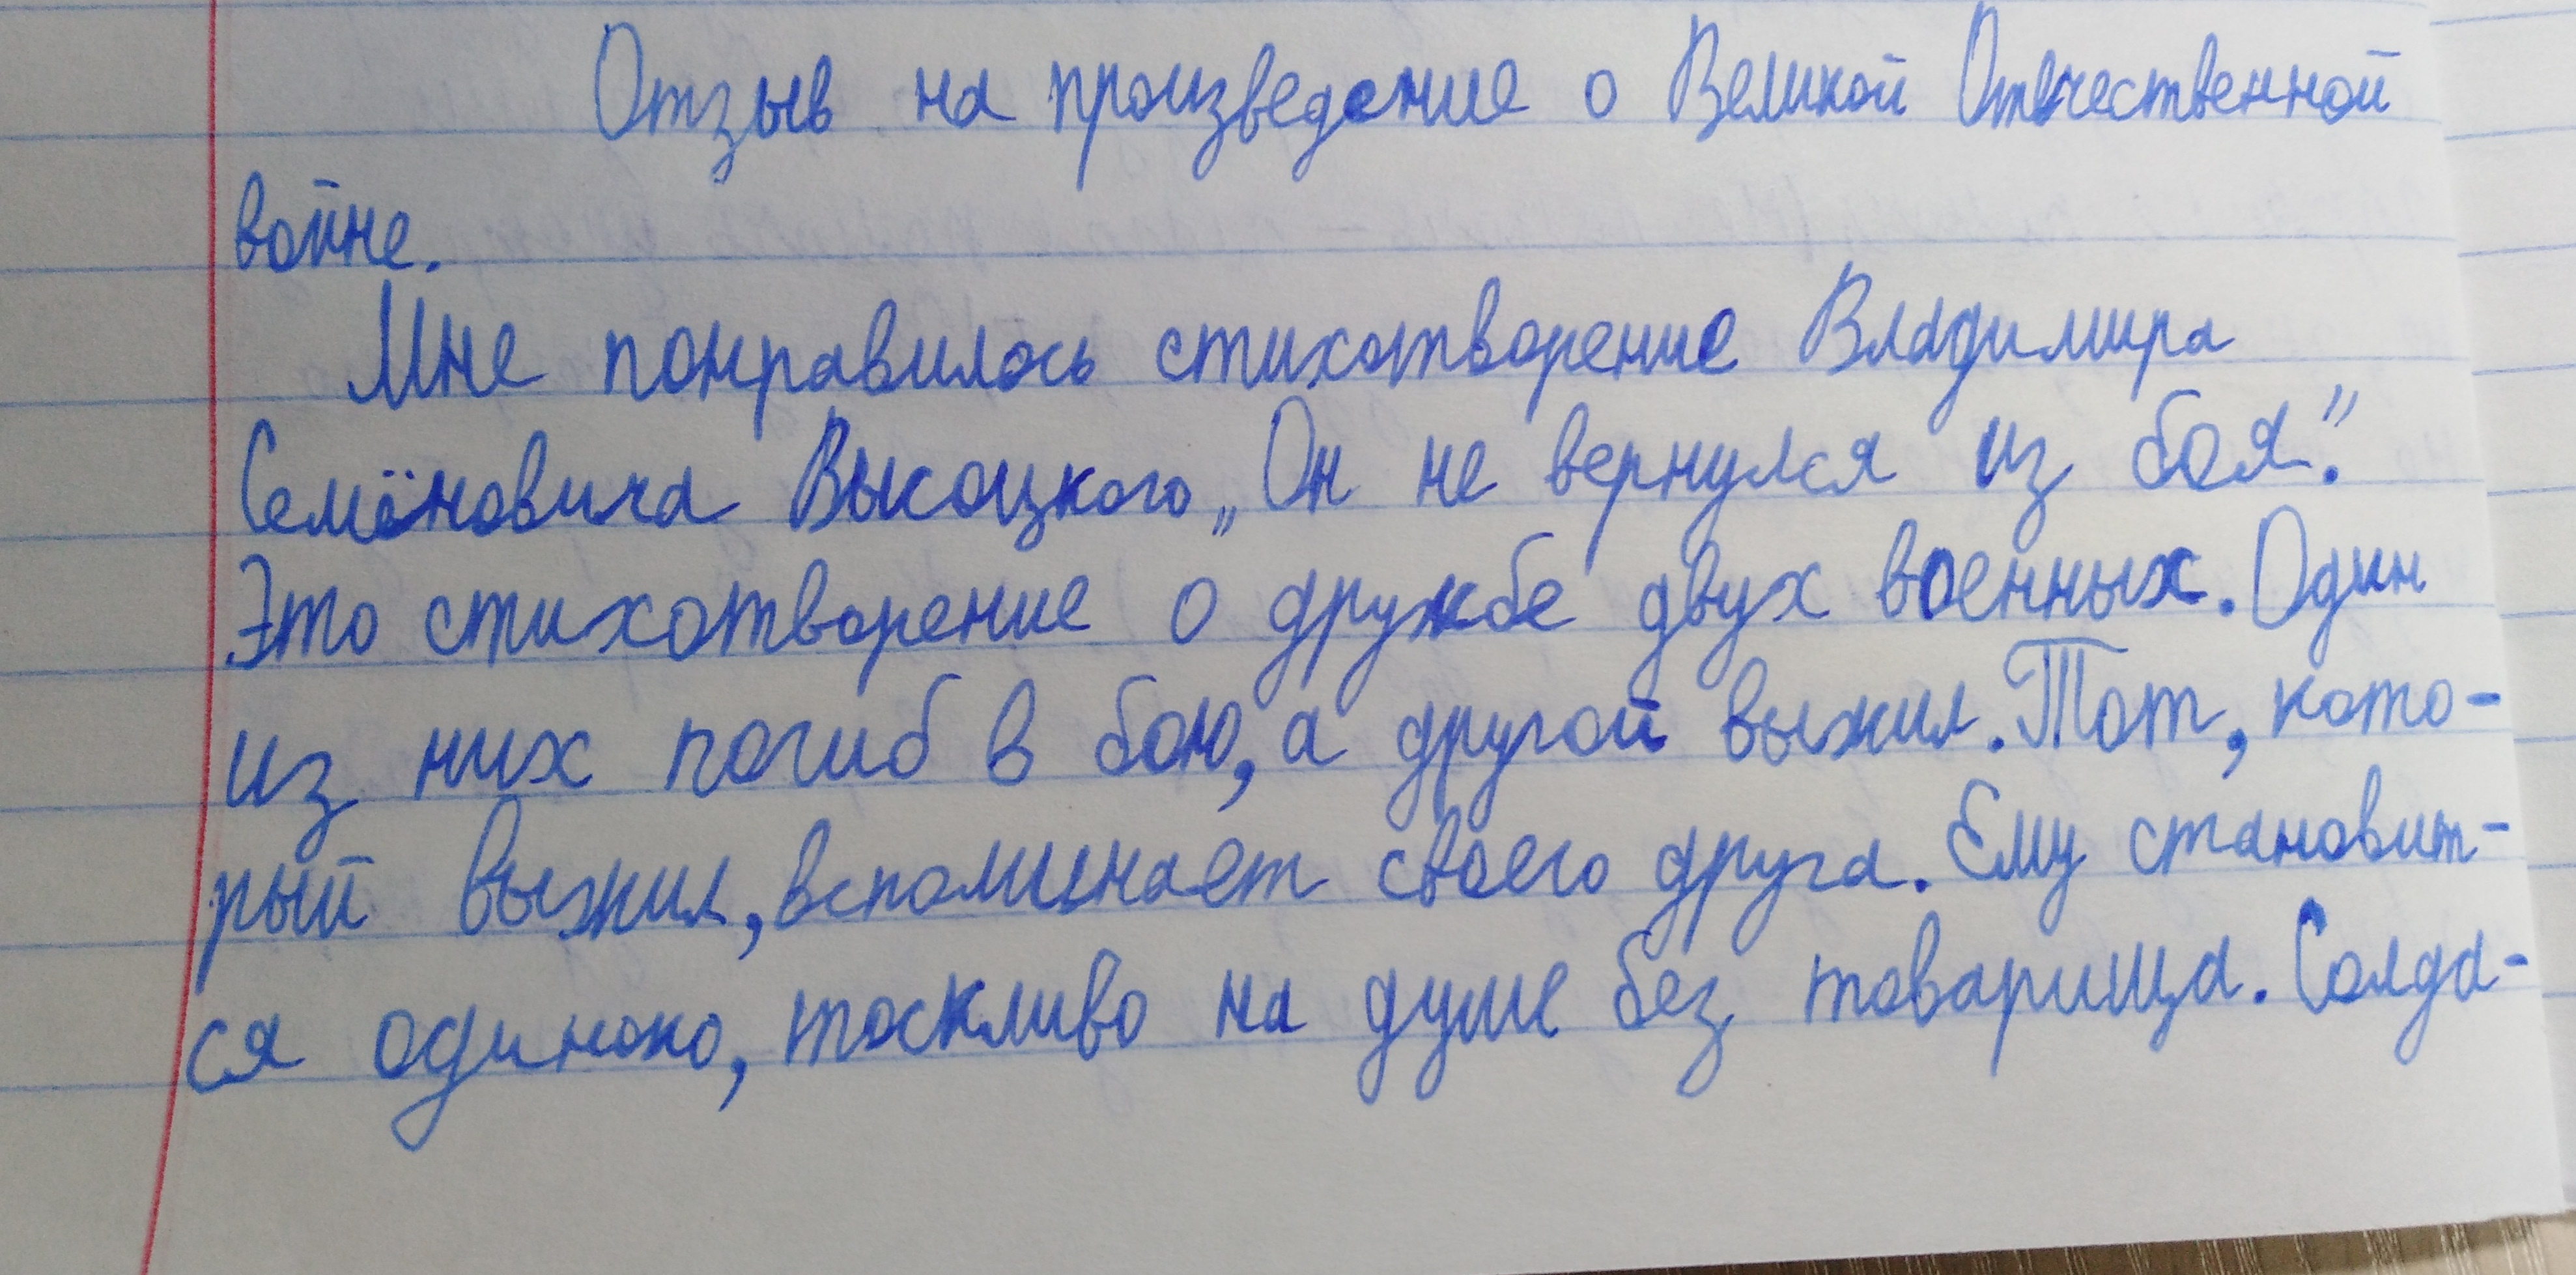 Отзыв на произведение о Великой Отечественной
войне.
Мне понравилось стихотворение Владимира
Семёновича Высоцкого „Он не вернулся из боя".
Это стихотворение о дружбе двух военных. Один
из них погиб в бою, а другой выжил. Тот, кото-
рый выжил, вспоминает своего друга. Ему становит-
ся одиноко, тоскливо на душе без товарища. Солда-